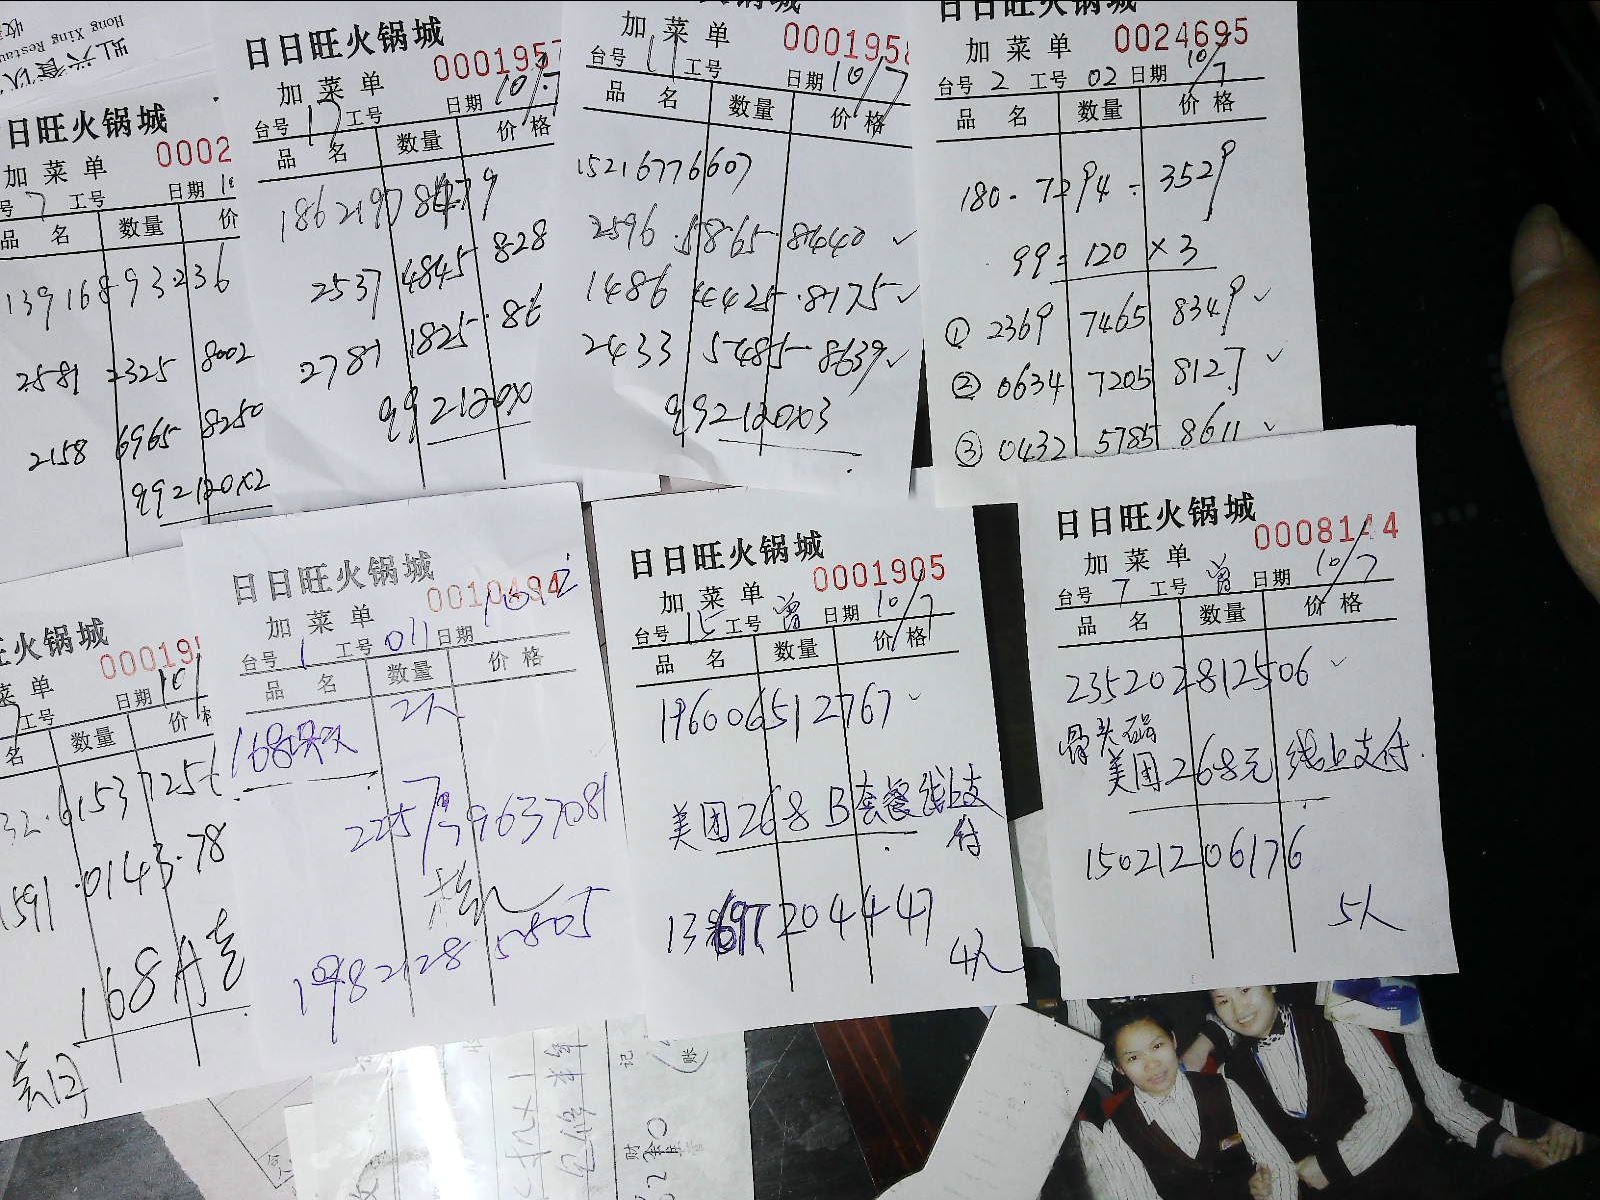 Hong Xing Restau
日日旺火锅城
加菜单 0002
号 7 工号 日期
品名 数量 价
13916893236
2581 2325 8002
2158 6965 8250
99=120×2
日日旺火锅城
加菜单 0001957
台号 17 工号 日期 10/7
品名 数量 价格
2537 4845 828
2781 1825.86
99=120×
加菜单 000195
台号 11 工号 日期 10/7
品名 数量 价格
15216776607
2596.5865.8440 ✓
1486 4425.8175 ✓
2433 5485-8639 ✓
99=120×3
日日旺火锅城
加菜单 0024695
台号 2 工号 02 日期 10/7
品名 数量 价格
180-7294-3529
99=120×3
① 2369 7465 8349 ✓
② 0634 7205 8127 ✓
③ 0432 5785 8611 ✓
火锅城
菜单 00019
工号 日期 10/
名 数量 价格
32.6153725
1591.0143.78
168A套
美团
日日旺火锅城
加菜单 0010494
台号 1 工号 011 日期
品名 数量 价格
2人
168
19821285805
日日旺火锅城
加菜单 0001905
台号 15 工号 曾 日期 10/7
品名 数量 价格
196006512767 ✓
美团268B套餐线上支
付
204447
4人
日日旺火锅城
加菜单 0008144
台号 7 工号 曾 日期 10/7
品名 数量 价格
235202812506 ✓
骨头锅
美团268元线上支付.
15021206176
5人